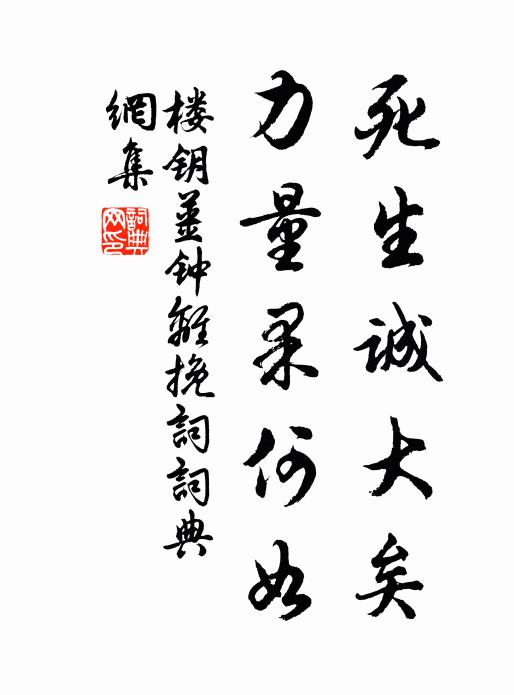 死生诚大矣
力量果何如
楼钥姜钟离挽词词典
網集
詞典网印